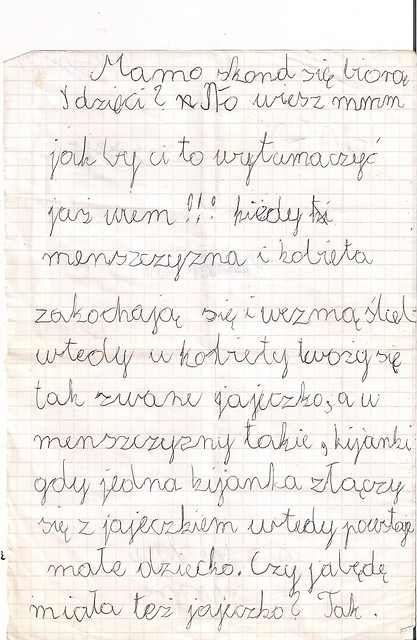 Mamo skond się biorą
dzieci? No wiesz mmm
jak by ci to wytumaczyć
już wiem!!! kiedy
menszczyzna i kobieta
zakochają się i wezmą ślub
wtedy u kobiety tworzy się
tak zwane jajeczko, a u
menszczyzny takie, kijanki
gdy jedna kijanka złączy
się z jajeczkiem wtedy powstaje
małe dziecko. Czy ja będę
miała też jajeczko? Tak.